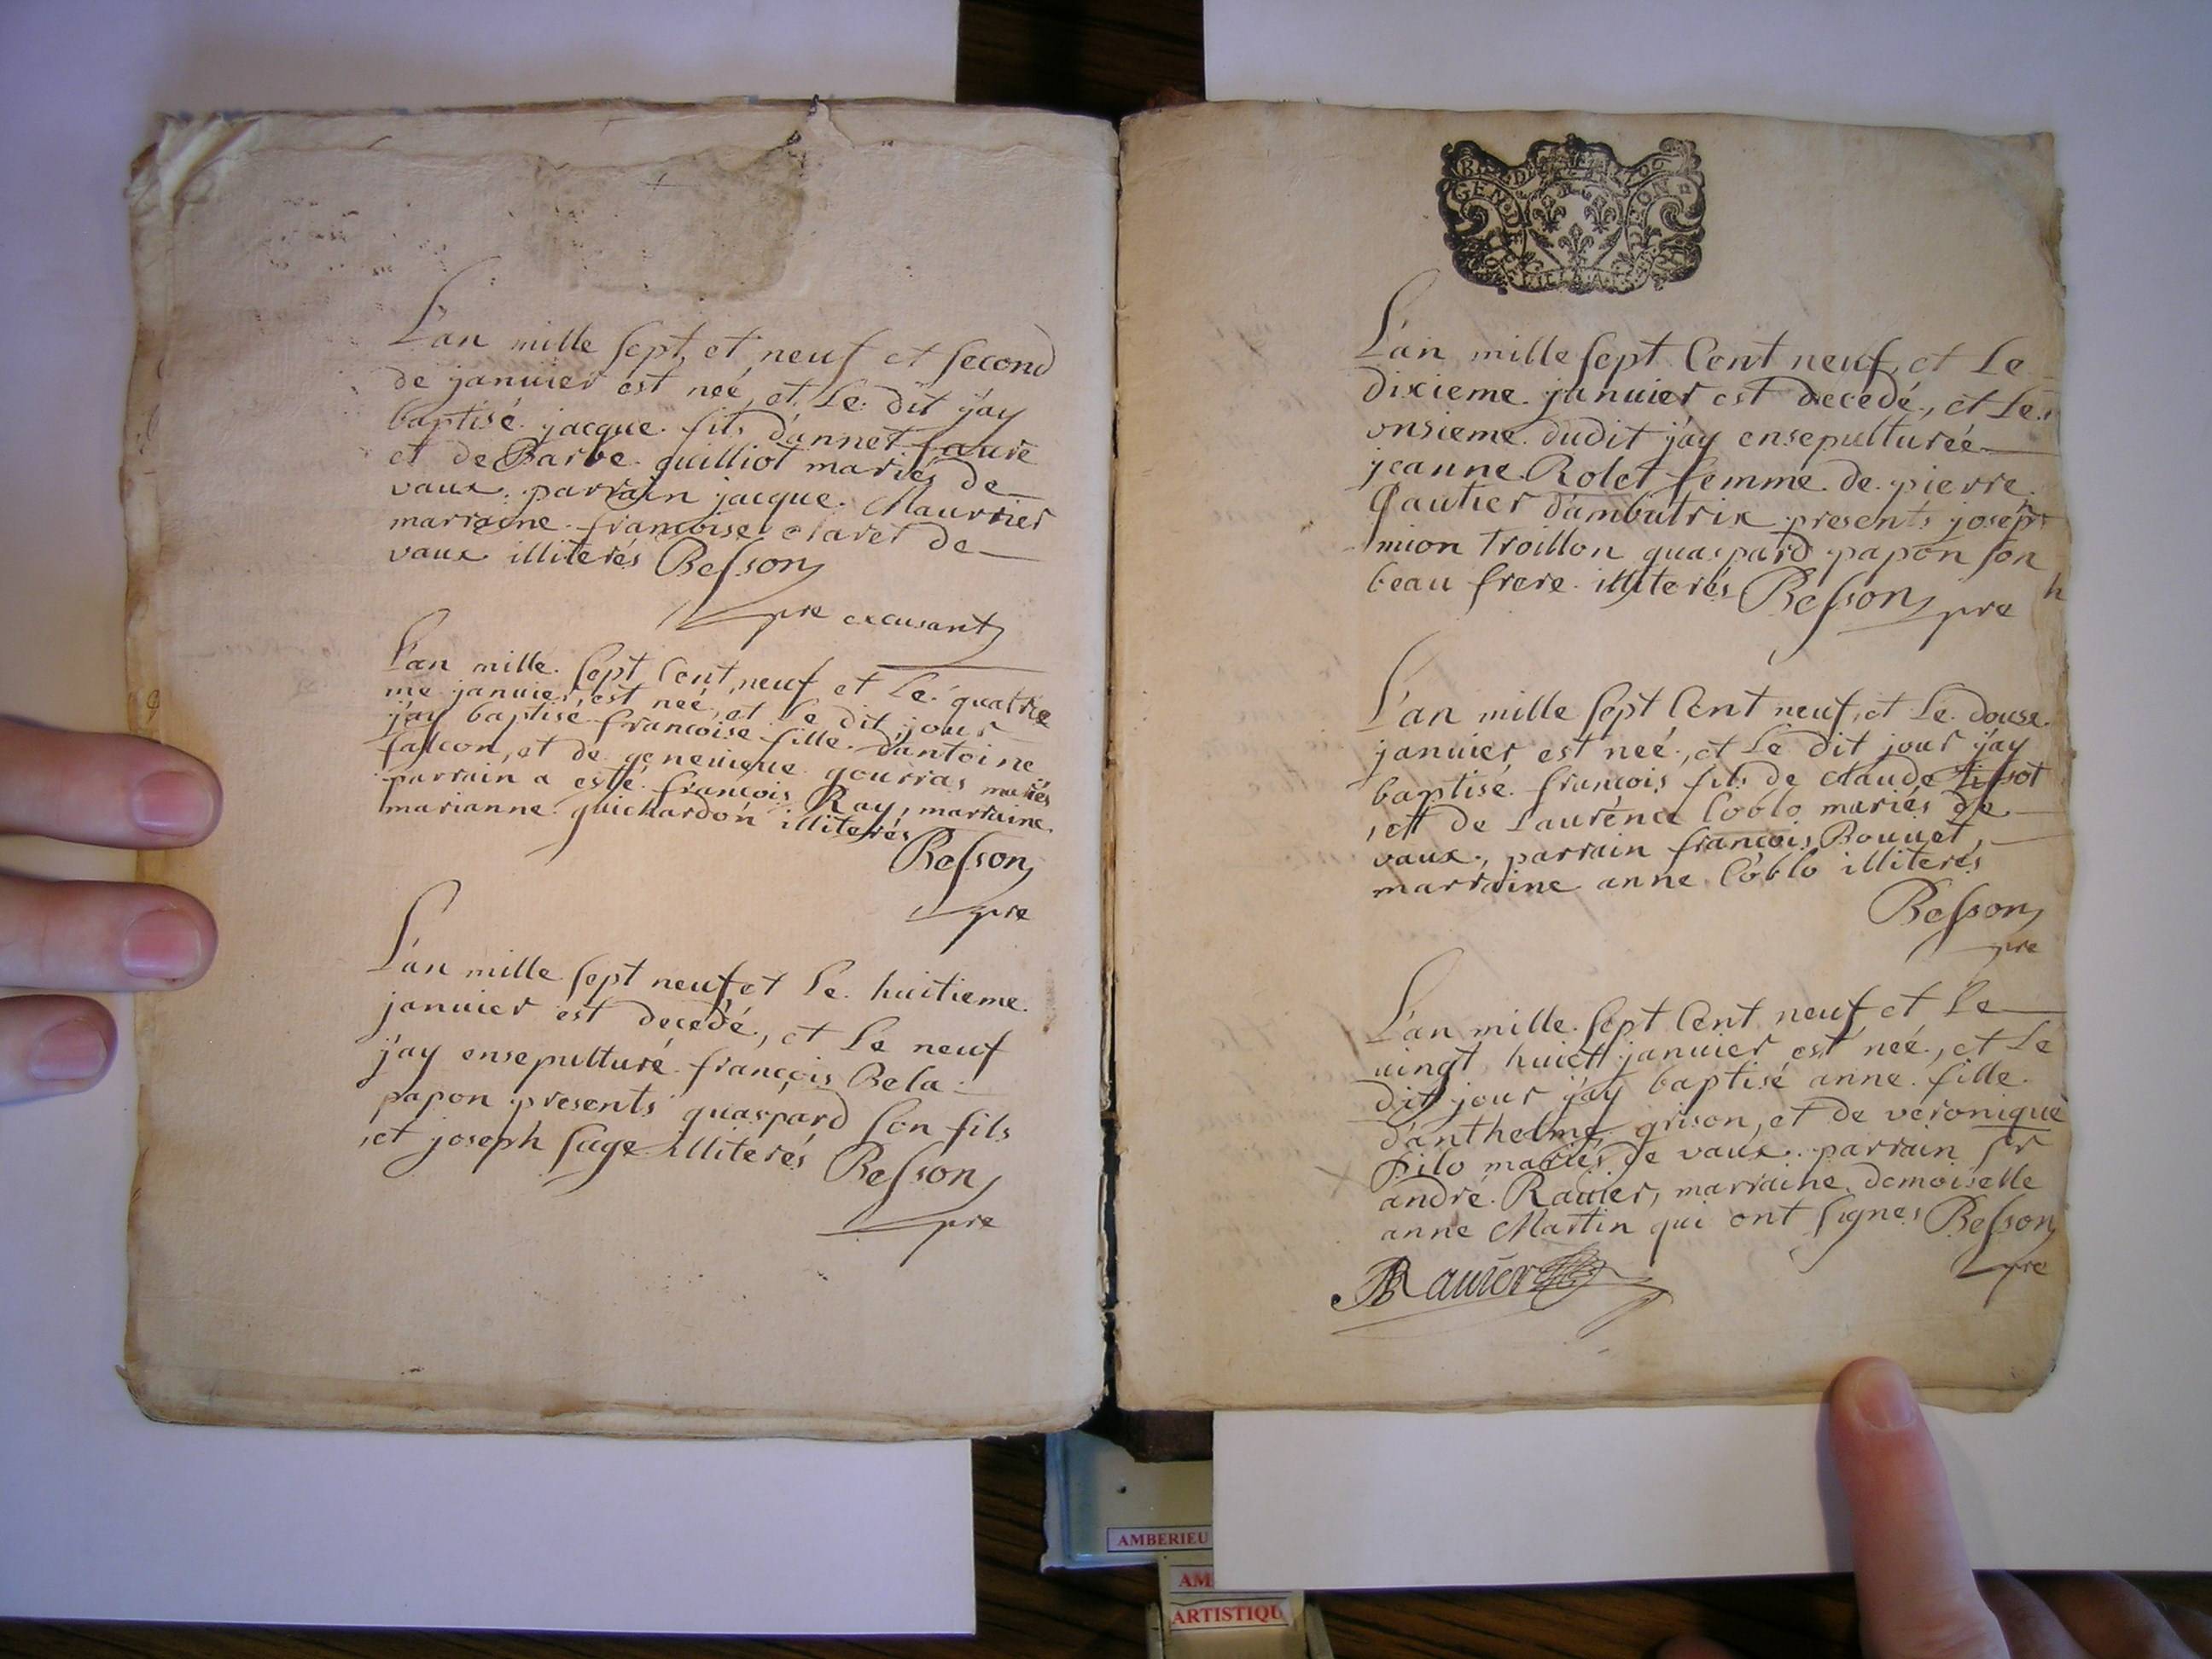 L'an mille sept et neuf et second
de januier est neé, et le dit j'ay
baptisé jacque fils d'annet faure
et de Barbe guilliot mariés de
vaux parrain jacque Maurrier
marraine francoise claret de
vaux illiterés Besson
pre excusant
L'an mille sept Cent neuf et le quatrie
me januier est neé, et le dit jour
j'ay baptisé francoise fille d'antoine
falcon, et de geneuieue gourras mariés
parrain a esté francois Ray, marraine
marianne guichardon illiterés
Besson
pre
L'an mille sept neuf et le huitieme
januier est decedé, et le neuf
j'ay ensepulturé francois Bela
papon presents quaspard son fils
et joseph sage illiterés Besson
pre
L'an mille sept Cent neuf, et le
dixieme januier est decedé, et le
onsieme dudit j'ay ensepulturéé
jeanne Rolet femme de pierre
Gautier d'ambutrix presents joseph
mion Troillon quaspard papon son
beau frere illiterés Besson
pre
L'an mille sept Cent neuf, et le douse
januier est neé, et le dit jour j'ay
baptisé francois fils de claude Tissot
et de Laurence Coblo mariés de
vaux, parrain francois Bouuet,
marraine anne Coblo illiterés
Besson
pre
L'an mille sept Cent neuf et le
uingt huict januier est neé, et le
dit jour j'ay baptisé anne fille
d'anthelme grison, et de veronique
pilo mariés de vaux parrain sr
andré Rauier, marraine demoiselle
anne Martin qui ont signes Besson
pre
Rauier
AMBERIEU
AM
ARTISTIQU